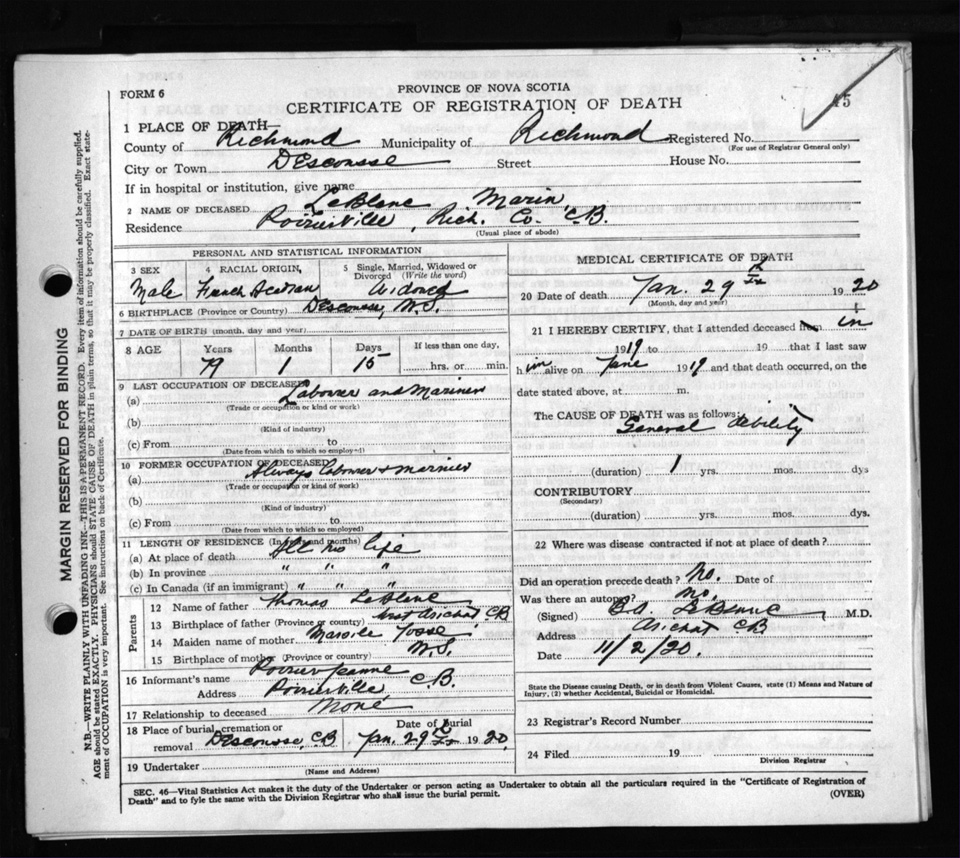 FORM 6
PROVINCE OF NOVA SCOTIA
CERTIFICATE OF REGISTRATION OF DEATH
15
1 PLACE OF DEATH—
County of Richmond Municipality of Richmond Registered No.
(For use of Registrar General only)
City or Town DEscousse Street House No.
If in hospital or institution, give name
2 NAME OF DECEASED LeBlanc Marin,
Residence Poirierville, Rich. Co. C.B.
(Usual place of abode)
PERSONAL AND STATISTICAL INFORMATION
3 SEX 4 RACIAL ORIGIN, 5 Single, Married, Widowed or Divorced (Write the word)
Male French Acadian Widowed
6 BIRTHPLACE (Province or Country) Descousse, N.S.
7 DATE OF BIRTH (month, day and year)
8 AGE Years Months Days If less than one day,
79 1 15 hrs. or min.
9 LAST OCCUPATION OF DECEASED
(a) Labourer and Mariner
(Trade or occupation or kind or work)
(b)
(Kind of industry)
(c) From to
(Date from which to which so employed)
10 FORMER OCCUPATION OF DECEASED
(a) Always labourer & mariner
(Trade or occupation or kind of work)
(b)
(Kind of industry)
(c) From to
(Date from which to which so employed)
11 LENGTH OF RESIDENCE (In years and months)
(a) At place of death All his life
(b) In province " " "
(c) In Canada (if an immigrant) " " "
Parents
12 Name of father Thomas LeBlanc
13 Birthplace of father (Province or country) West Arichat, CB
14 Maiden name of mother
15 Birthplace of mother (Province or country) N.S.
16 Informant's name Poirier Jeanne
Address Poirierville, C.B.
17 Relationship to deceased None
18 Place of burial, cremation or removal Descousse, C.B. Date of burial Jan. 29th 1920,
19 Undertaker
(Name and Address)
MEDICAL CERTIFICATE OF DEATH
20 Date of death Jan. 29th 1920
(Month, day and year)
21 I HEREBY CERTIFY, that I attended deceased from in
1919 to 19 that I last saw
him alive on June 1919 and that death occurred, on the
date stated above, at m.
The CAUSE OF DEATH was as follows:
General debility
(duration) 1 yrs. mos. dys
CONTRIBUTORY
(Secondary)
(duration) yrs. mos. dys.
22 Where was disease contracted if not at place of death?
Did an operation precede death? No. Date of
Was there an autopsy? No,
(Signed) LeBlanc M.D.
Address Arichat CB
Date 11/2/20.
State the Disease causing Death, or in death from Violent Causes, state (1) Means and Nature of
Injury, (2) whether Accidental, Suicidal or Homicidal.
23 Registrar's Record Number
24 Filed 19
Division Registrar
SEC. 46—Vital Statistics Act makes it the duty of the Undertaker or person acting as Undertaker to obtain all the particulars required in the "Certificate of Registration of
Death" and to fyle the same with the Division Registrar who shall issue the burial permit.
(OVER)
MARGIN RESERVED FOR BINDING
N.B.—WRITE PLAINLY WITH UNFADING INK—THIS IS A PERMANENT RECORD. Every item of information should be carefully supplied.
AGE should be stated EXACTLY. PHYSICIANS should STATE CAUSE OF DEATH in plain terms, so that it may be properly classified. Exact state-
ment of OCCUPATION is very important. See instructions on back of Certificate.